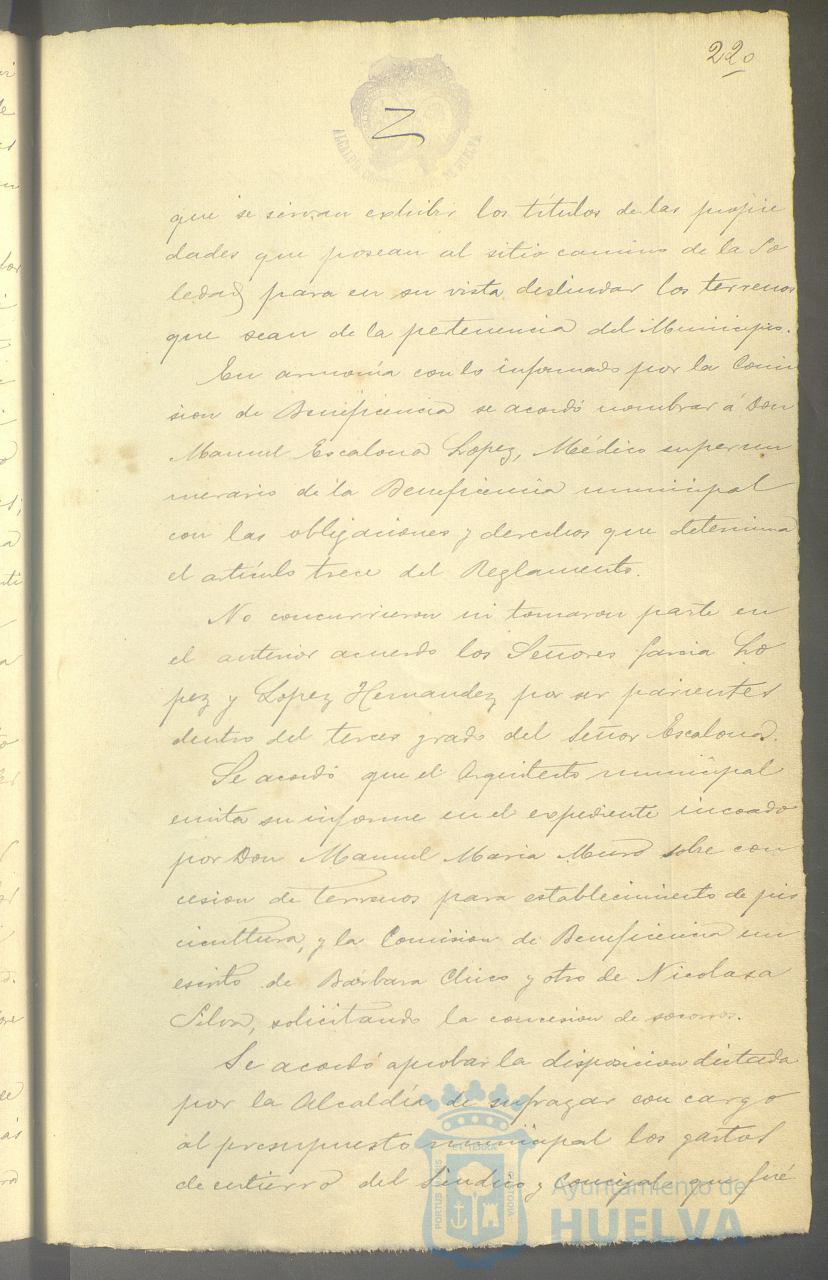 220
que se sirvan exhibir los títulos de las propie
dades que posean al sitio camino de la So
ledad para en su vista deslindar los terrenos
que sean de la pertenencia del Municipio.
En armonía con lo informado por la Comi
sion de Beneficencia se acordó nombrar á Don
Manuel Escalona Lopez, Médico supernu
merario de la Beneficencia municipal
con las obligaciones y derechos que determina
el artículo trece del Reglamento.
No concurrieron ni tomaron parte en
el anterior acuerdo los Señores Garcia Lo
pez y Lopez Hernandez por ser parientes
dentro del tercer grado del Señor Escalona.
Se acordó que el Arquitecto municipal
emita su informe en el expediente incoado
por Don Manuel Maria Muro sobre con
cesion de terrenos para establecimiento de pis
cicultura, y la Comision de Beneficencia en
escrito de Bárbara Chico y otro de Nicolasa
Silva, solicitando la concesion de socorros.
Se acordó aprobar la disposicion dictada
por la Alcaldía de sufragar con cargo
al presupuesto municipal los gastos
de entierro del Síndico y Concejal que fué
PORTUS
CUSTODIA
Ayuntamiento de
HUELVA